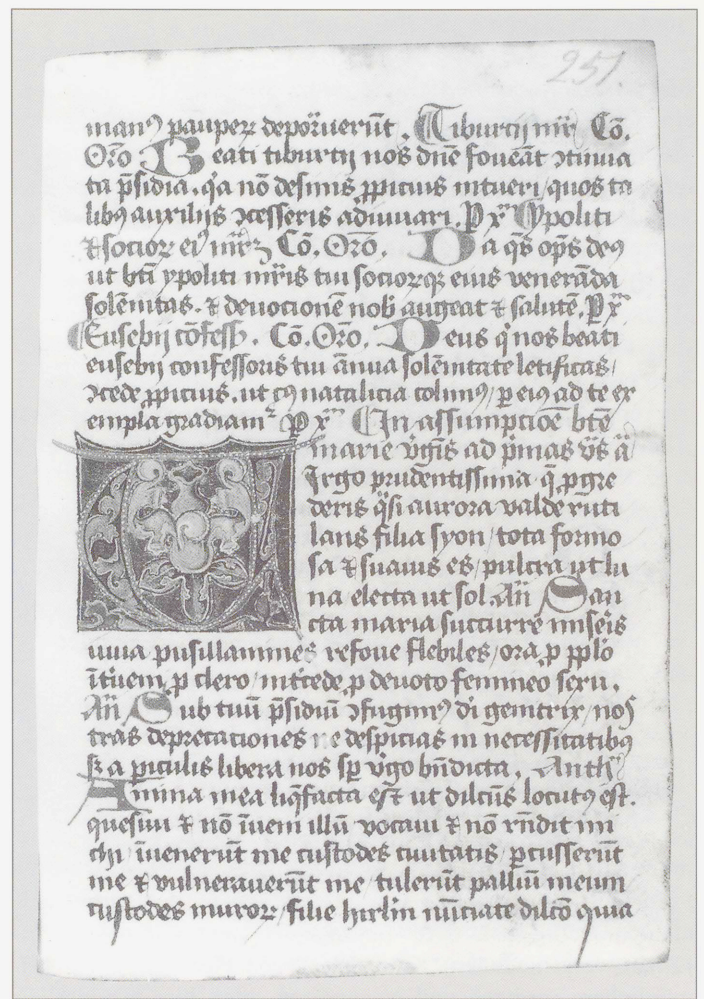 251.
manꝰ pauperꝝ deportauerūt. Tiburcij mr̄ Cō.
Oro Beati tiburtij nos dn̄e foueāt ꝯtinua
ta p̄sidia. q̄a nō desinis ꝓpicius intueri / quos ta
libꝰ auxilijs ꝯcesseris adiuuari. P xm̄ Ypoliti
⁊ socioꝝ eiꝰ mr̄ꝝ Cō. Oro. Da q̄s op̄s deꝰ
ut bt̄i ypoliti mr̄is tui socioꝝqꝫ eius venerāda
solēnitas. ⁊ deuocionē nob̄ augeat ⁊ salutē. P xm̄
Eusebij cōfess̄. Cō. Oro. Deus q̇ nos beati
eusebij confessoris tui ānua solēnitate letificas /
ꝯcede ꝓpicius. ut cꝰ natalicia colimꝰ / ꝑ eiꝰ ad te ex
empla gradiamr̄ P xm̄ In assumpcioē bt̄e
marie v̇gīs ad p̄mas vs̄ ā
Virgo prudentissima q̄ ꝓgre
deris q̄si aurora valde ruti
lans filia syon / tota formo
sa ⁊ suauis es / pulcra ut lu
na electa ut sol. An̄ San
cta maria succurre miseris
iuua pusillanimes refoue flebiles / ora ꝓ pplo
īt̄uem ꝓ clero / int̄cede ꝓ deuoto femineo sexu.
An̄ Sub tuū p̄sidiū ꝯfugimꝰ di genitrix / nos
tras deprecaciones ne despicias in necessitatibꝰ
sꝫ a piculis libera nos sp̄ v̇go bn̄dicta. Anth̄
Anima mea liq̄facta est ut dilcūs locutꝰ est.
quesiui ⁊ nō īueni illū vocaui ⁊ nō rn̄dit mi
chi / īuenerūt me custodes ciuitatis / ꝑcusserūt
me ⁊ vulnerauerūt me / tulerūt palliū meum
custodes muroꝝ / filie hirlm̄ nūciate dilcō quia